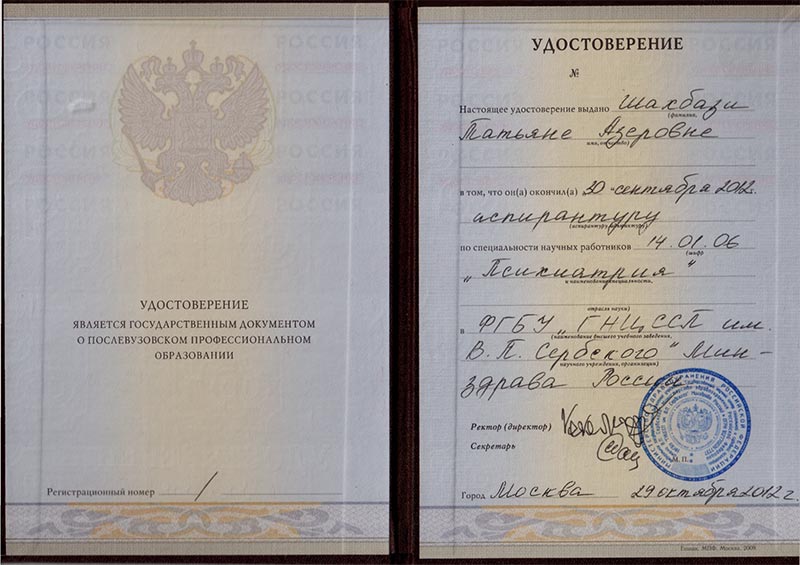 УДОСТОВЕРЕНИЕ
ЯВЛЯЕТСЯ ГОСУДАРСТВЕННЫМ ДОКУМЕНТОМ
О ПОСЛЕВУЗОВСКОМ ПРОФЕССИОНАЛЬНОМ
ОБРАЗОВАНИИ
Регистрационный номер /
УДОСТОВЕРЕНИЕ
№
Настоящее удостоверение выдано Шахбази
(фамилия,
Татьяне Азеровне
имя, отчество)
в том, что он(а) окончил(а) „30 "сентября 2012г.
аспирантуру
по специальности научных работников 14.01.06
(шифр
„Психиатрия"
и наименование специальности,
отрасль науки)
в ФГБУ „ГНЦССП им.
(наименование высшего учебного заведения,
В.П. Сербского" Мин-
научного учреждения, организации)
здрава России
Ректор (директор)
Секретарь
М.П.
Город Москва 29 октября 2012 г.
Москва, 2008